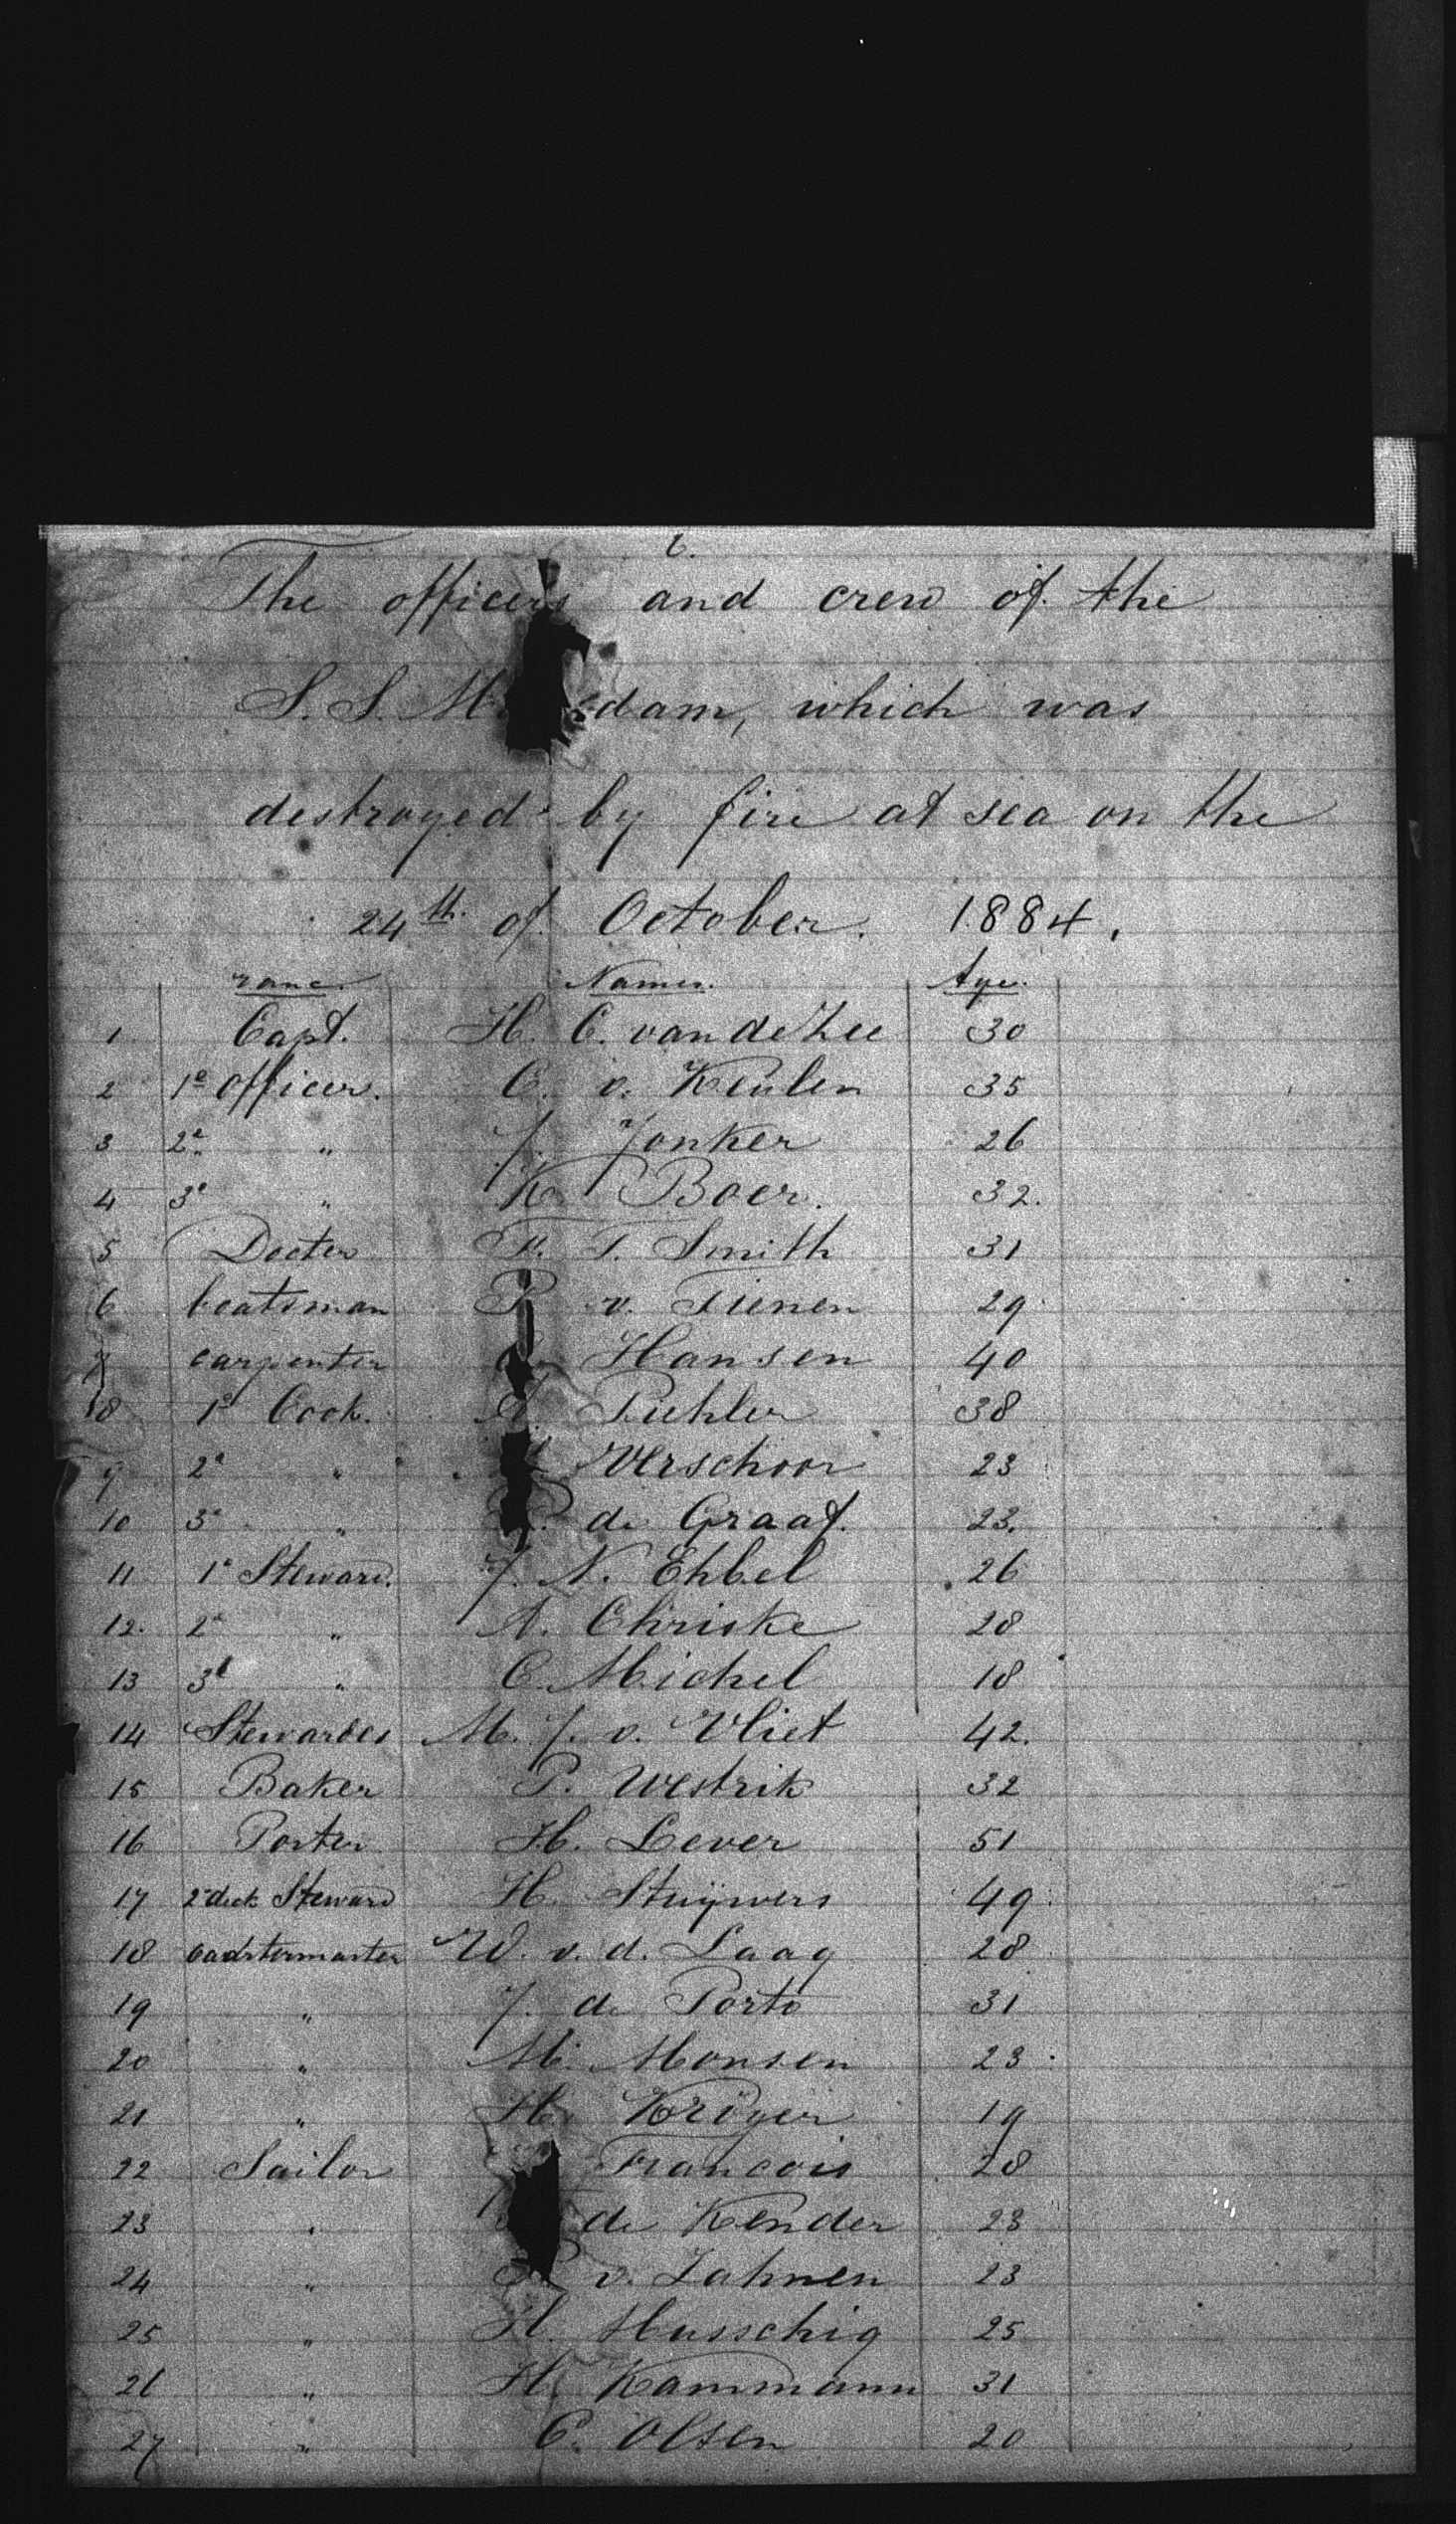 6.
The officers and crew of the
S. S. M dam, which was
destroyed by fire at sea on the
24th of October. 1884.
ranc. Names. Age.
1 Capt. H. C. van de Zee 30
2 1e officer. C. v. Keulen 35
3 2e " J. Jonker 26
4 3e " K. Boer. 32.
5 Docter F. T. Smith 31
6 boatsman P. v. Tienen 29
7 carpenter Hansen 40
8 1e Cook. Piehler 38
9 2e " Verschoor 23
10 3e " de Graaf. 23.
11 1e Steward. J. N. Ehbel 26
12. 2e " A. Chriske 28
13 3e " C. Michel 18
14 Stewardes M. J. v. Vliet 42.
15 Baker P. Westrik 32
16 Porter H. Lever 51
17 2e deck Steward H. Stuÿvers 49
18 W. v. d. Laag 28
19 " J. de Porto 31
20 " M. Monsen 23
21 " H. Kröger 19
22 Sailor Francois 28
23 " de Kender 23
24 " v. Zahnen 23
25 " H. Musschig 25
26 " H. Kammann 31
27 " C. Olsen 20